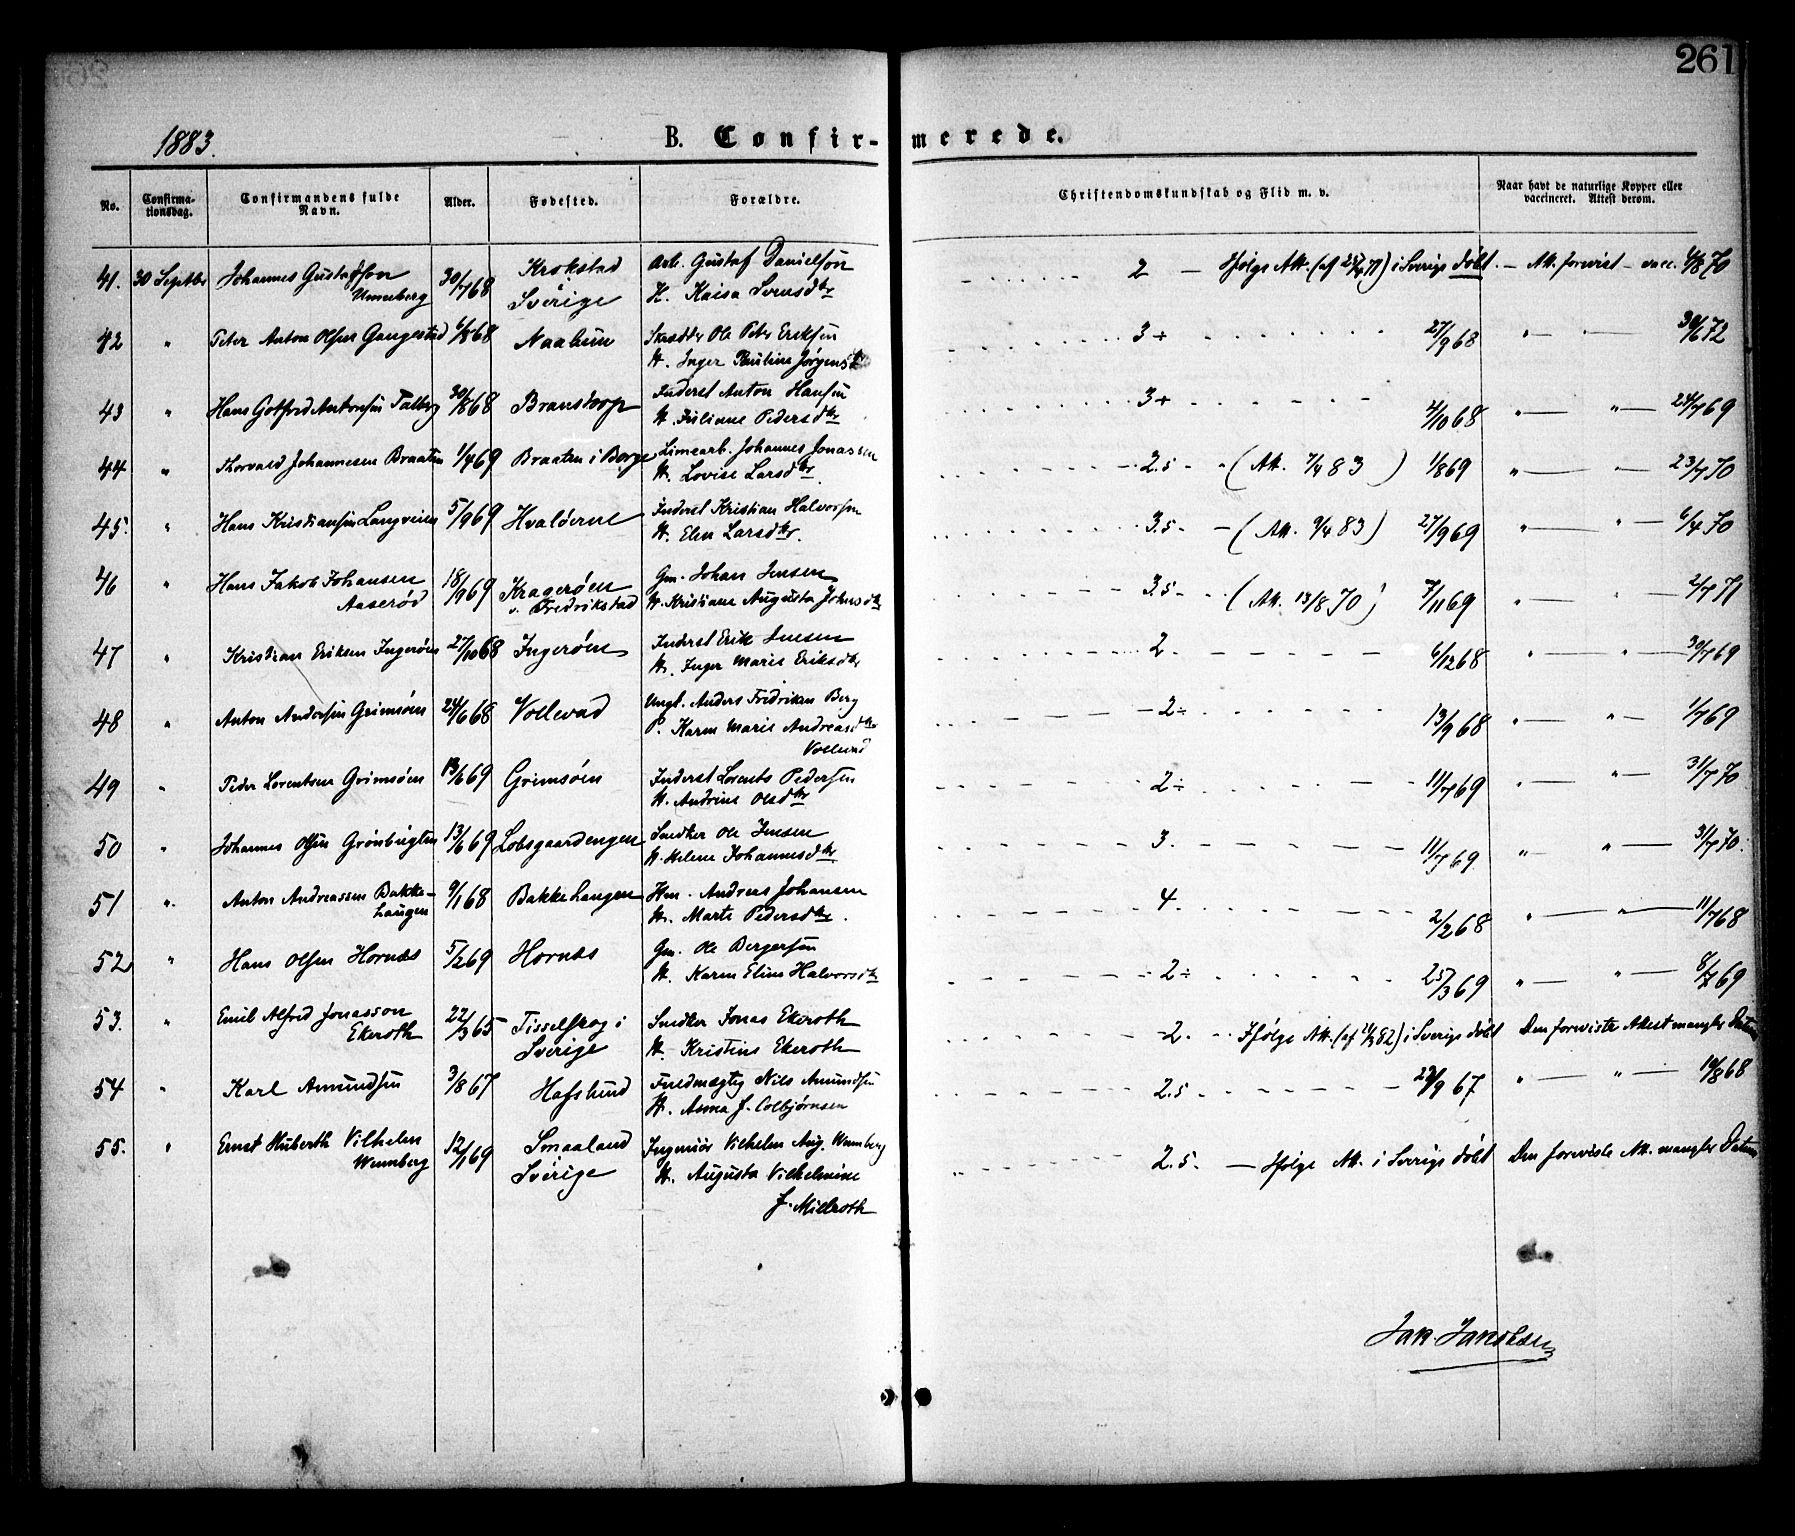 261
1883.
B. Confirmerede.
No.
Confirmationsdag.
Confirmandens fulde Navn.
Alder.
Fødested.
Forældre.
Christendomskundskab og Flid m. v.
Naar havt de naturlige Kopper eller vaccineret. Attest derom.
41. 30 Septbr Johannes Gustafson 30/7 68 Krokstad Arb. Gustaf Danielson 2 — Ifølge Att. (af 77) i Sverige døbt. — Att. forevist — vacc. 70
Sverige H. Kaisa Svensdtr
42 " Peter Anton Olsen Gangestad 6/8 68 Skrædder Ole Peter Eriksen 3+ 27/9 68 " — " — 30/6 72
H. Inger Pauline Jørgensdtr
43 " Hans Gotfred Antonsen 30/8 68 Branstorp Inderst Anton Hansen 3+ 4/10 68 " — " — 24/7 69
H. Juliane Pedersdtr
44 " Thorvald Johannesen Braaten 1/4 69 Braaten i Borge Limearb. Johannes Jonassen 2.5 - (Att. 7/4 83) 1/8 69 " — " — 23/7 70
H. Lovise Larsdtr.
45. " Hans Kristiansen 5/9 69 Hvaløerne Inderst Kristian Halvorsen 3.5 - — (Att. 9/4 83) 27/9 69 " — " — 6/4 70
H. Elen Larsdtr.
46 " Hans Jakob Johansen 18/9 69 Kragerøen Gm. Johan Jensen 3.5 - (Att. 13/8 70) 7/11 69 " — " — 2/7 71
Aaserød v. Fredrikstad H. Kristiane Augusta Johnsdtr
47 " Kristian Eriksen Ingerøen 27/10 68 Ingerøen Inderst Erik Jensen 2. 6/12 68 " — " — 30/7 69
H. Inger Marie Eriksdtr
48 " Anton Andersen Grimsøen 24/6 68 Vollevad Ungk. Anders Fredriksen Berg 2 ÷ 13/9 68 " — " — 1/7 69
P. Karen Marie Andreasdtr
49 " Peder Lorentsen Grimsøen 13/6 69 Grimsøen Inderst Lorents Pedersen 2 ÷ 11/7 69 " — " — 31/7 70
H. Andrine Olsdtr
50 " Johannes Olsen Grønbugten 13/6 69 Lobsgaardengen Snedker Ole Jensen 3. 11/7 69 " — " — 31/7 70.
H. Helene Johannesdtr
51 " Anton Andreassen Bakke- 9/1 68 Bakkehaugen Hm. Andreas Johansen 4. 2/2 68 " — " — 11/7 68
haugen H. Marte Pedersdtr.
52 " Hans Olsen Hornæs 5/2 69 Hornæs Gm. Ole Bergersen 2 ÷ 25/3 69 " — " — 8/7 69
H. Karen Eline Halvorsdtr
53. " Emil Alfred Jonasson 22/3 65 Tisselskog i Snedker Jonas Ekeroth 2. Ifølge Att. (af 82) i Sverige døbt Den foreviste Attest mangler Datum
Ekeroth Sverige H. Kristine Ekeroth
54 " Karl Amundsen 3/8 67 Hafslund Fuldmægtig Nils Amundsen 2.5 29/9 67 " — " — 19/8 68
H. Anna f. Colbjørnsen
55. " Ernst Huberth Vilhelm 12/1 69 Smaaland Ingeniør Vilhelm Aug. Wennberg 2.5. — Ifølge Att. i Sverige døbt Den foreviste Att. mangler Datum
Wennberg Sverige H. Augusta Vilhelmine
f. Millroth
Jak. Jakobsen